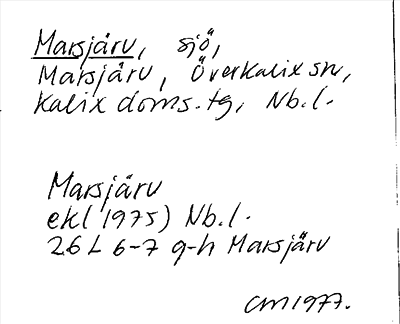 Marsjärv, sjö,
Marsjärv, Överkalix sn,
Kalix doms.tg, Nb.l.
Marsjärv
ekl (1975) Nb.l.
26 L 6-7 g-h Marsjärv
CM 1977.